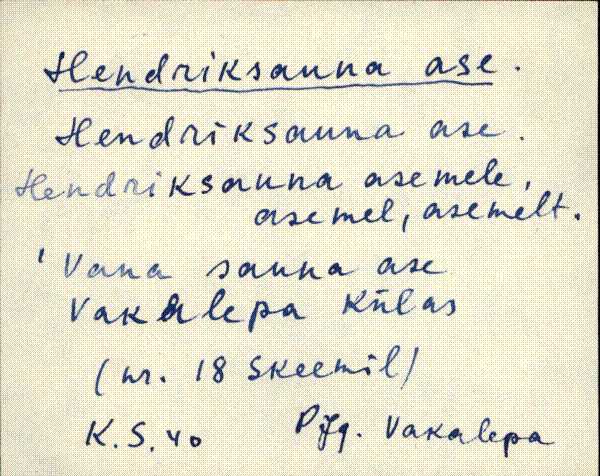 Hendriksauna ase.
Hendriksauna ase.
Hendriksauna asemele,
asemel, asemelt.
' Vana sauna ase
Vakalepa külas
(nr. 18 skeemil)
K.S. 40 Pjg. Vakalepa